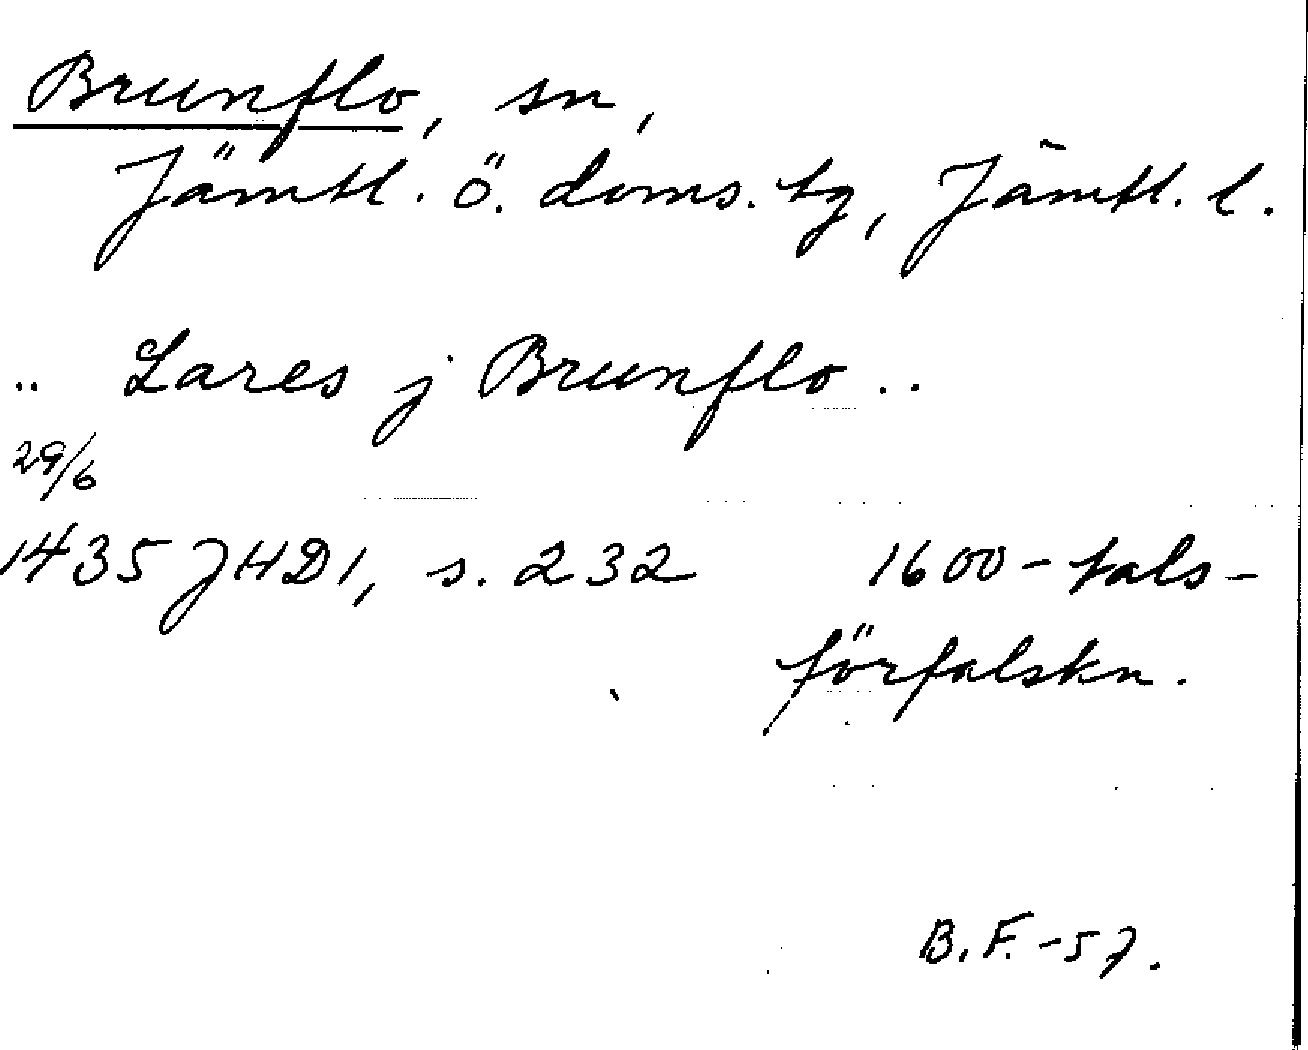 Brunflo, sn,
Jämtl. ö. doms. tg, Jämtl. l.
.. Lares j Brunflo ..
29/6
1435 JHD1, s. 232 1600-tals-
förfalskn.
B.F.-57.